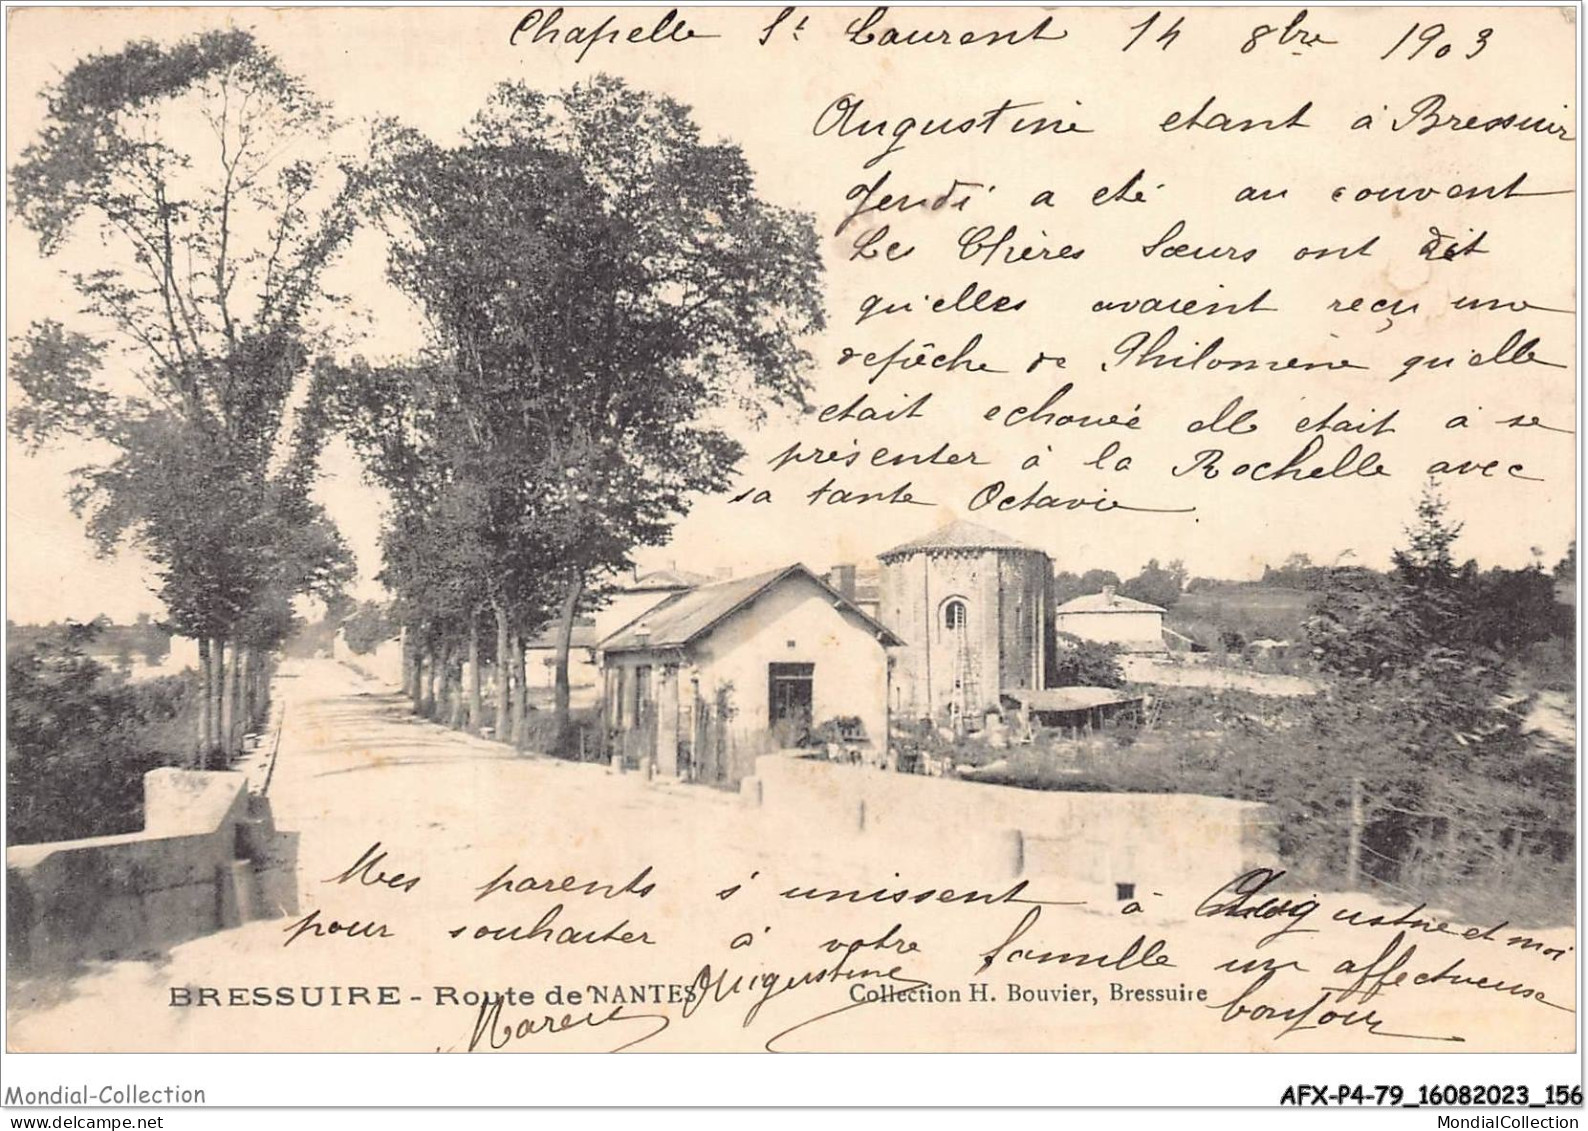 Chapelle St Laurent 14 8bre 1903
Augustine etant à Bressuir
Jeudi a eté au couvent
Les Chères Sœurs ont dit
qu'elles avaient reçu une
depêche de Philomène qu'elle
était echouée elle etait à se
présenter à la Rochelle avec
sa tante Octavie.
Mes parents s'unissent à Augustine et moi
pour souhaiter à votre famille un affectueuse
bonjour
Augustine
BRESSUIRE - Route de NANTES
Collection H. Bouvier, Bressuire
Mondial-Collection
AFX-P4-79_16082023_156
MondialCollection